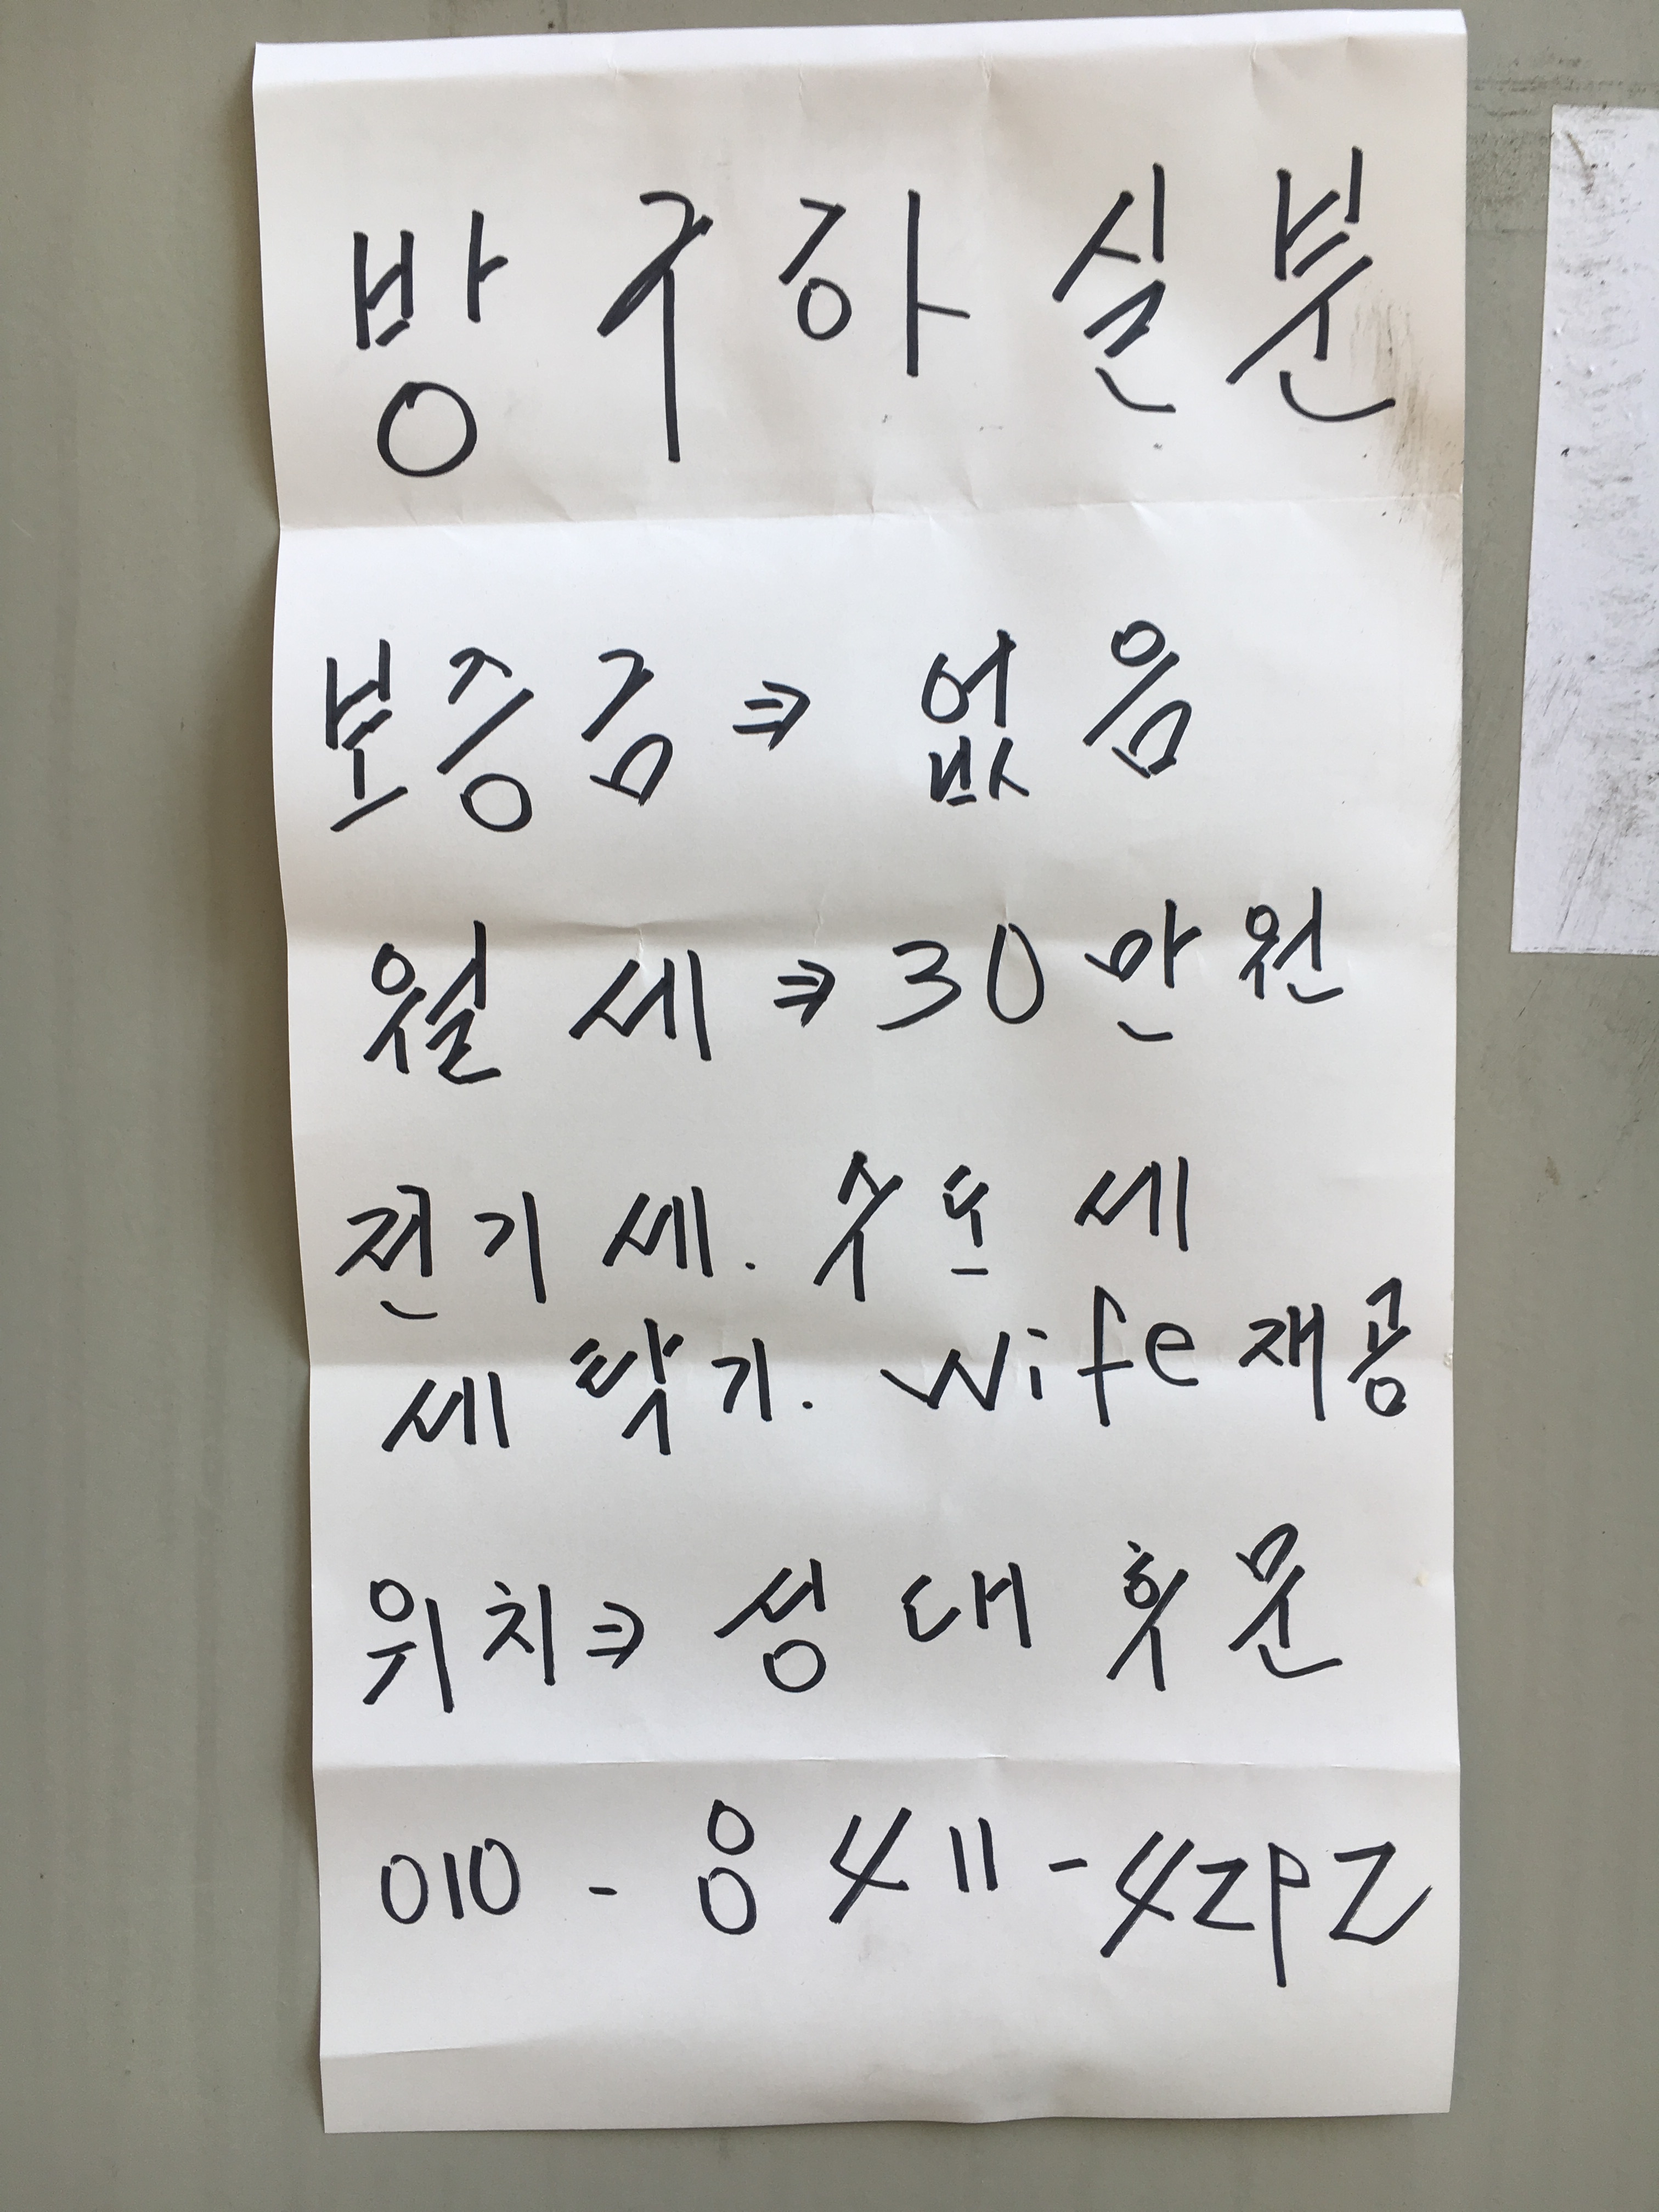 방 구 하 실 분
보 증 금 ⇒ 없 음
월 세 ⇒ 30 만 원
전 기 세. 수 도 세
세 탁 기. wife 재 공
위 치 ⇒ 성 대 훗 문
010 - 8411 - 4292